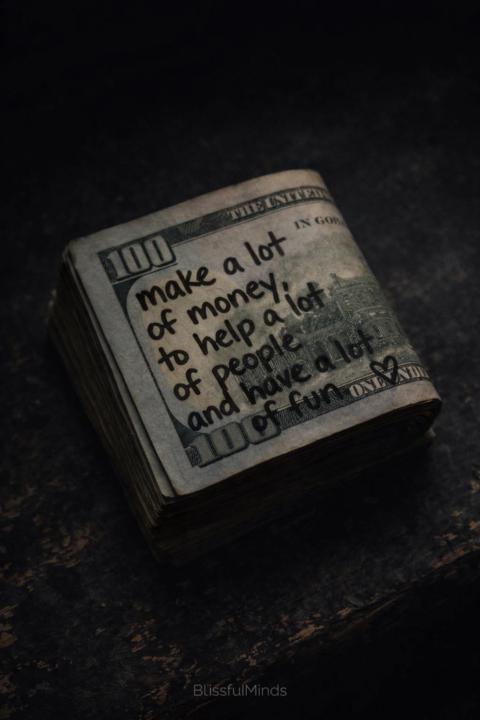 THE UNITED
IN GOD
100
make a lot
of money,
to help a lot
of people
and have a lot
of fun ♡
100
ONE HUND
BlissfulMinds